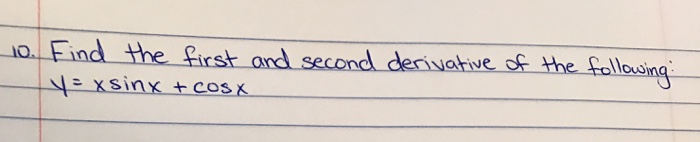 10. Find the first and second derivative of the following:
y = x sinx + cosx